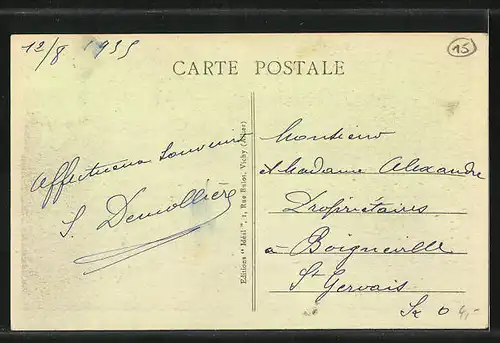 12/8 1935
15
CARTE POSTALE
Affectueux souvenir
S. Demollière
Editions " Mésl ", 1, Rue Bulot, Vichy (Allier)
Monsieur
et Madame Alexandre
Propriétaires
à Boigneville
St Gervais
S. O 4,-